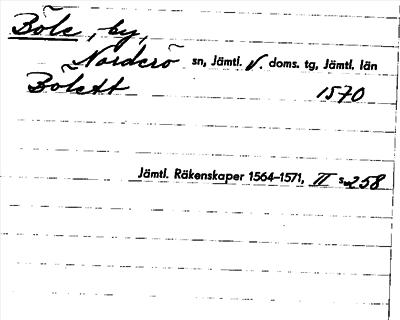 Böle, by,
Norderö sn, Jämtl. V. doms. tg, Jämtl. län
Bölett 1570
Jämtl. Räkenskaper 1564–1571, II s. 258